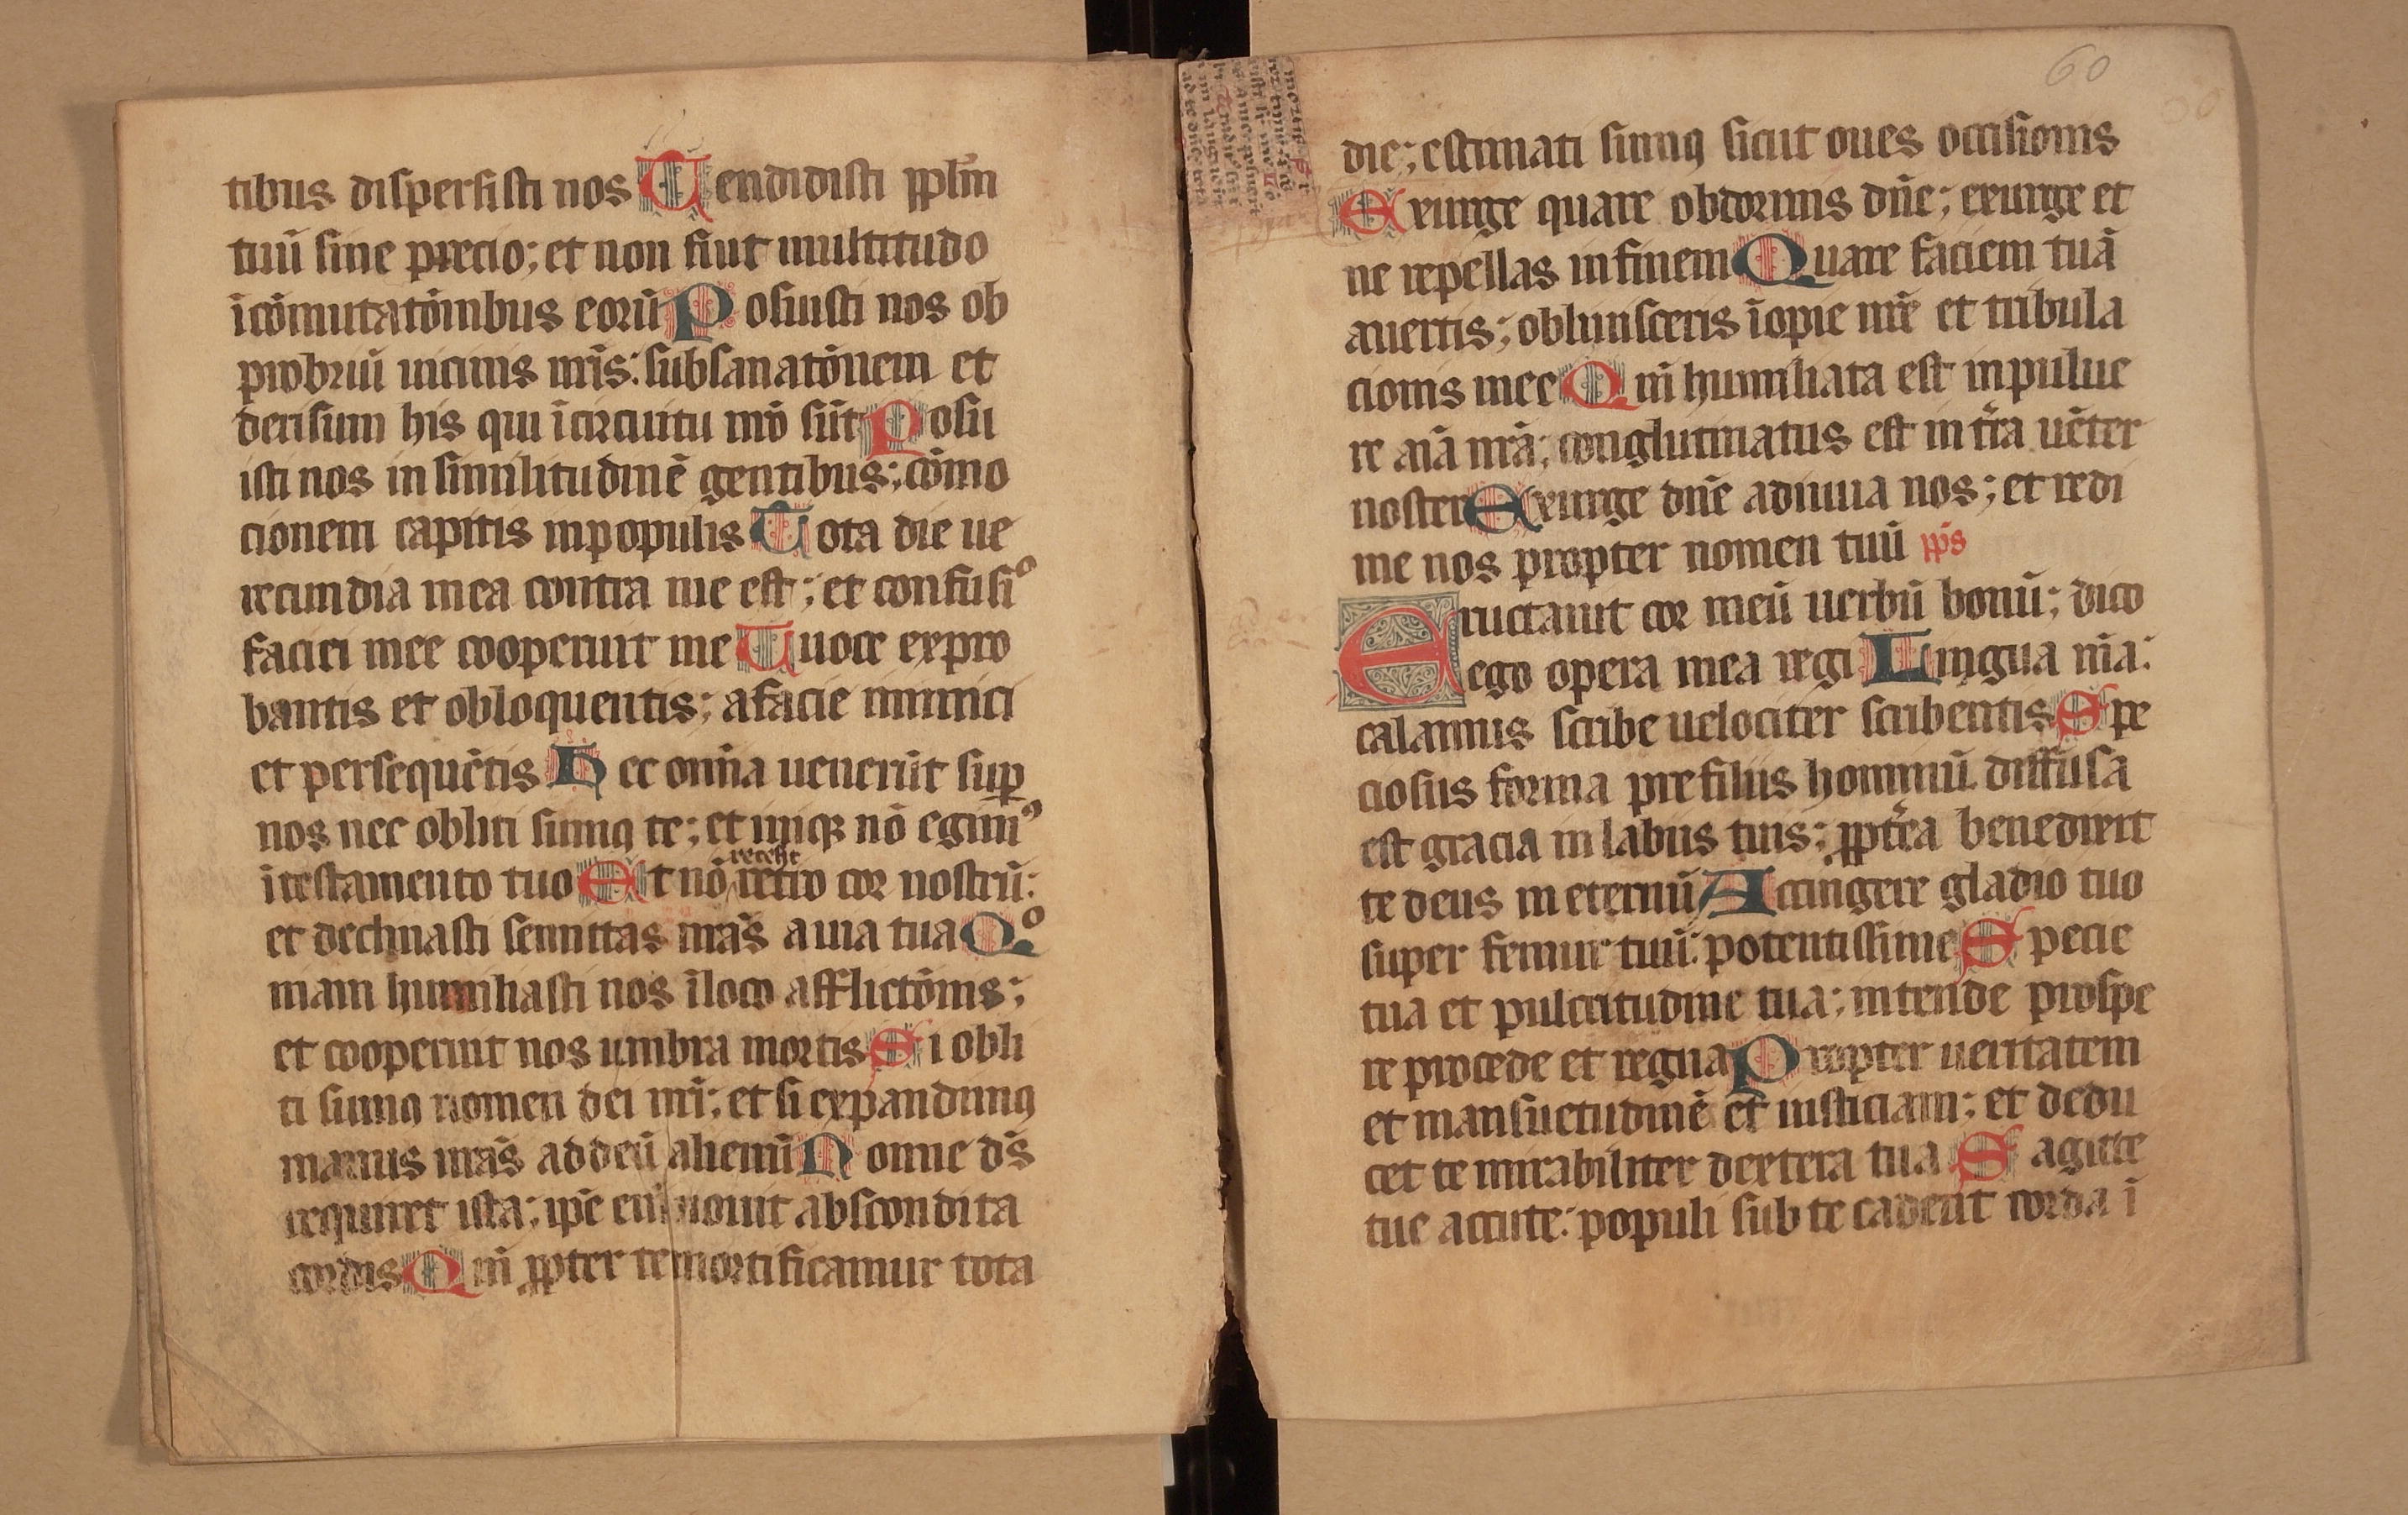 tibus dispersisti nos Uendidisti pplm̄
tuū sine precio; et non fiut multitudo
īcōmutatōinbus eorū Posuisti nos ob
probriū uicinis nr̄is: subsanatōnem et
derisum his qui ī circuitu nr̄o sūt Posu
isti nos in similitudinē gentibus; cōmo
cionem capitis in populis Tota die ue
recundia mea contra me est; et confusiº
faciei mee cooperuit me A uoce expro
bantis et obloquentis; a facie inimici
et persequētis Hec om̄ia uenerūt suꝑ
nos nec obliti sumꝯ te; et iniqꝫ nō egimꝰ
ī testamento tuo Et nō retro cor nostrū:
recessit
et declinasti semittas nr̄as a uia tua Qº
niam humiliasti nos ī loco afflictōnis;
et cooperuit nos umbra mortis Si obli
ti sumꝯ nomen dei nr̄i; et si expandimꝯ
manus nr̄as ad deū alienū Nonne ds̄
requiret ista; ip̄e eni̅ nouit abscondita
cordis Qm̄ ꝓpter te mortificamur tota
60
die; estimati sumꝯ sicut oues occisionis
Exurge quare obdormis dn̄e; exurge et
ne repellas in finem Quare faciem tuā
auertis; obliuisceris īopie nr̄e et tribula
cionis mee Qm̄ humiliata est in pulue
re aīa nr̄a; conglutinatus est in tr̄a uēter
noster Exurge dn̄e adiuua nos; et redi
me nos propter nomen tuū pͦs
Eructauit cor meū uerbū bonū; dico
ego opera mea regi Lingua m̄a:
calamus scribe uelociter scribentis Spe
ciosus forma pre filiis hominū diffusa
est gracia in labiis tuis; ꝓpt̄ea benedixit
te deus in eternū Accingere gladio tuo
super femur tuū: potentissime Specie
tua et pulcritudine tua; intende prospe
re procede et regna Propter ueritatem
et mansuetudinē et iusticiam; et dedu
cet te mirabiliter dextera tua Sagitte
tue accute: populi sub te cadent corda ī